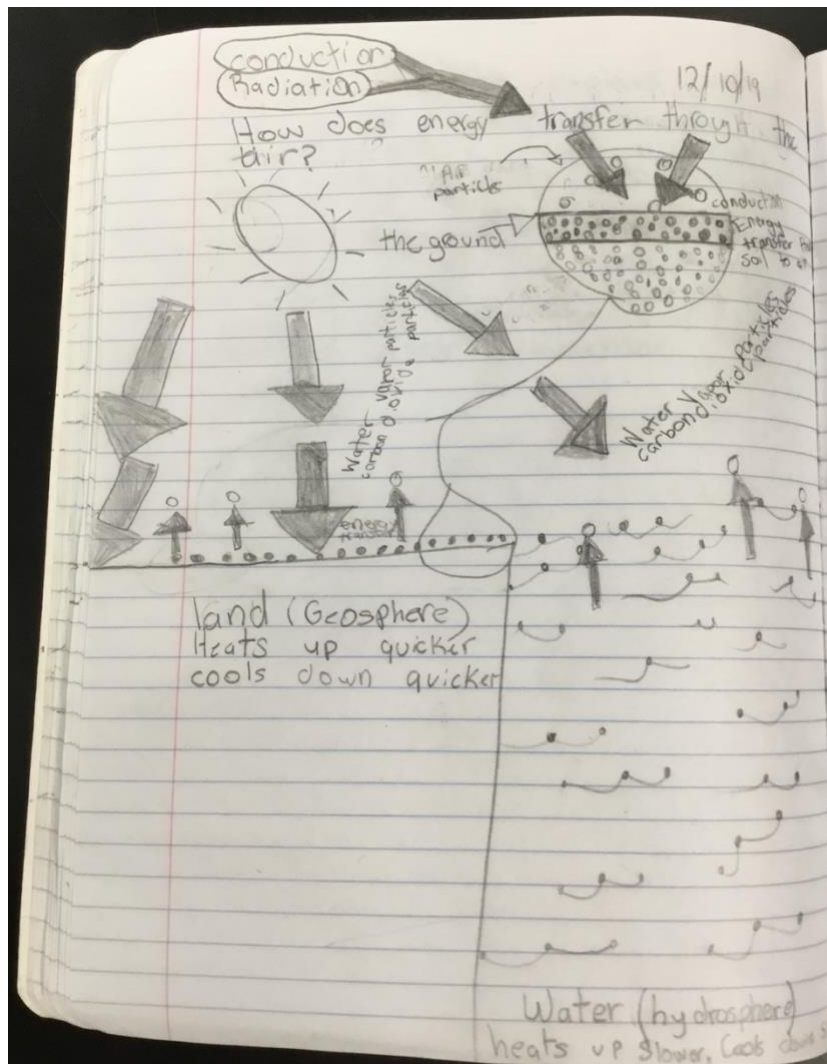 conduction
Radiation
12/10/19
How does energy transfer through the
air?
Air
particles
conduction
Energy
transfer
soil to
the ground
Water vapor particles
carbon dioxide particles
Water vapor particles
carbon dioxide particles
energy
transfer
land (Geosphere)
Heats up quicker
cools down quicker
Water (hydrosphere)
heats up slower. Cools down